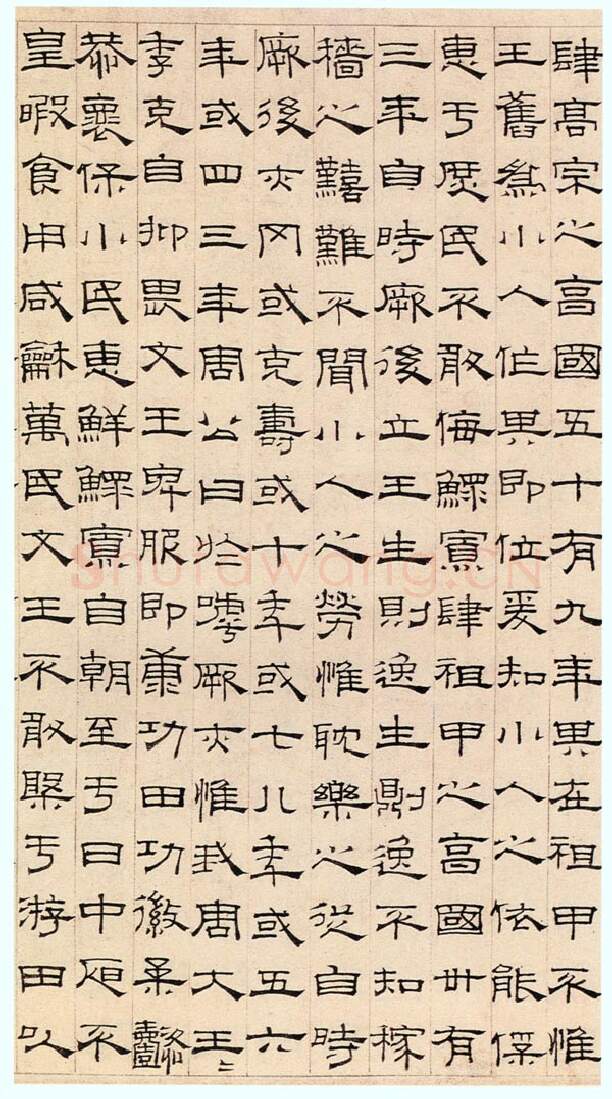 肆高宗之亯國五十有九年其在祖甲不惟
王舊爲小人作其即位爰知小人之依能保
惠于庶民不敢侮鰥寡肆祖甲之亯國卅有
三年自時厥後立王生則逸生則逸不知稼
穡之囏難不聞小人之勞惟耽樂之從自時
厥後亦罔或克壽或十年或七八年或五六
年或四三年周公曰於嘑厥亦惟我周大王二
季克自抑畏文王卑服即康功田功徽柔懿
恭褱保小民惠鮮鰥寡自朝至于日中昃不
皇暇食用咸龢萬民文王不敢槃于游田以
Shufawang.CN